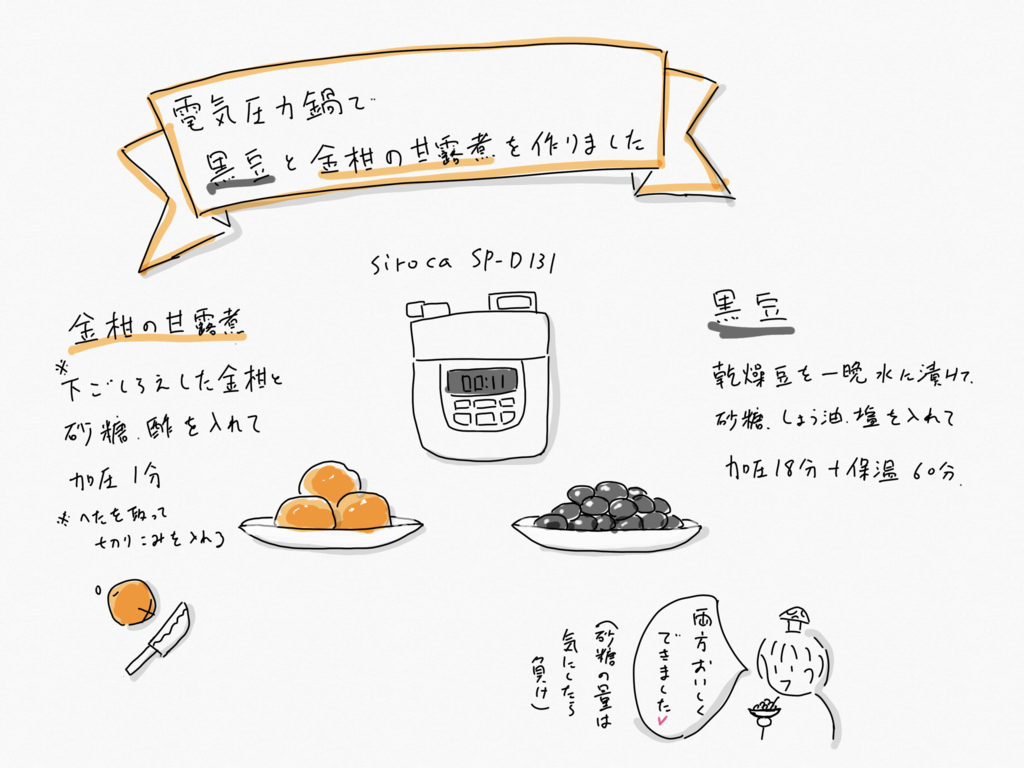 電気圧力鍋で
黒豆と金柑の甘露煮を作りました
siroca SP-D131
00:11
金柑の甘露煮
※下ごしろえした金柑と
砂糖、酢を入れて
加圧1分
※へたを取って
切りこみを入れる
黒豆
乾燥豆を一晩水に漬けて、
砂糖、しょう油、塩を入れて
加圧18分+保温60分.
両方おいしく
できました
(砂糖の量は
気にしたら
負け)